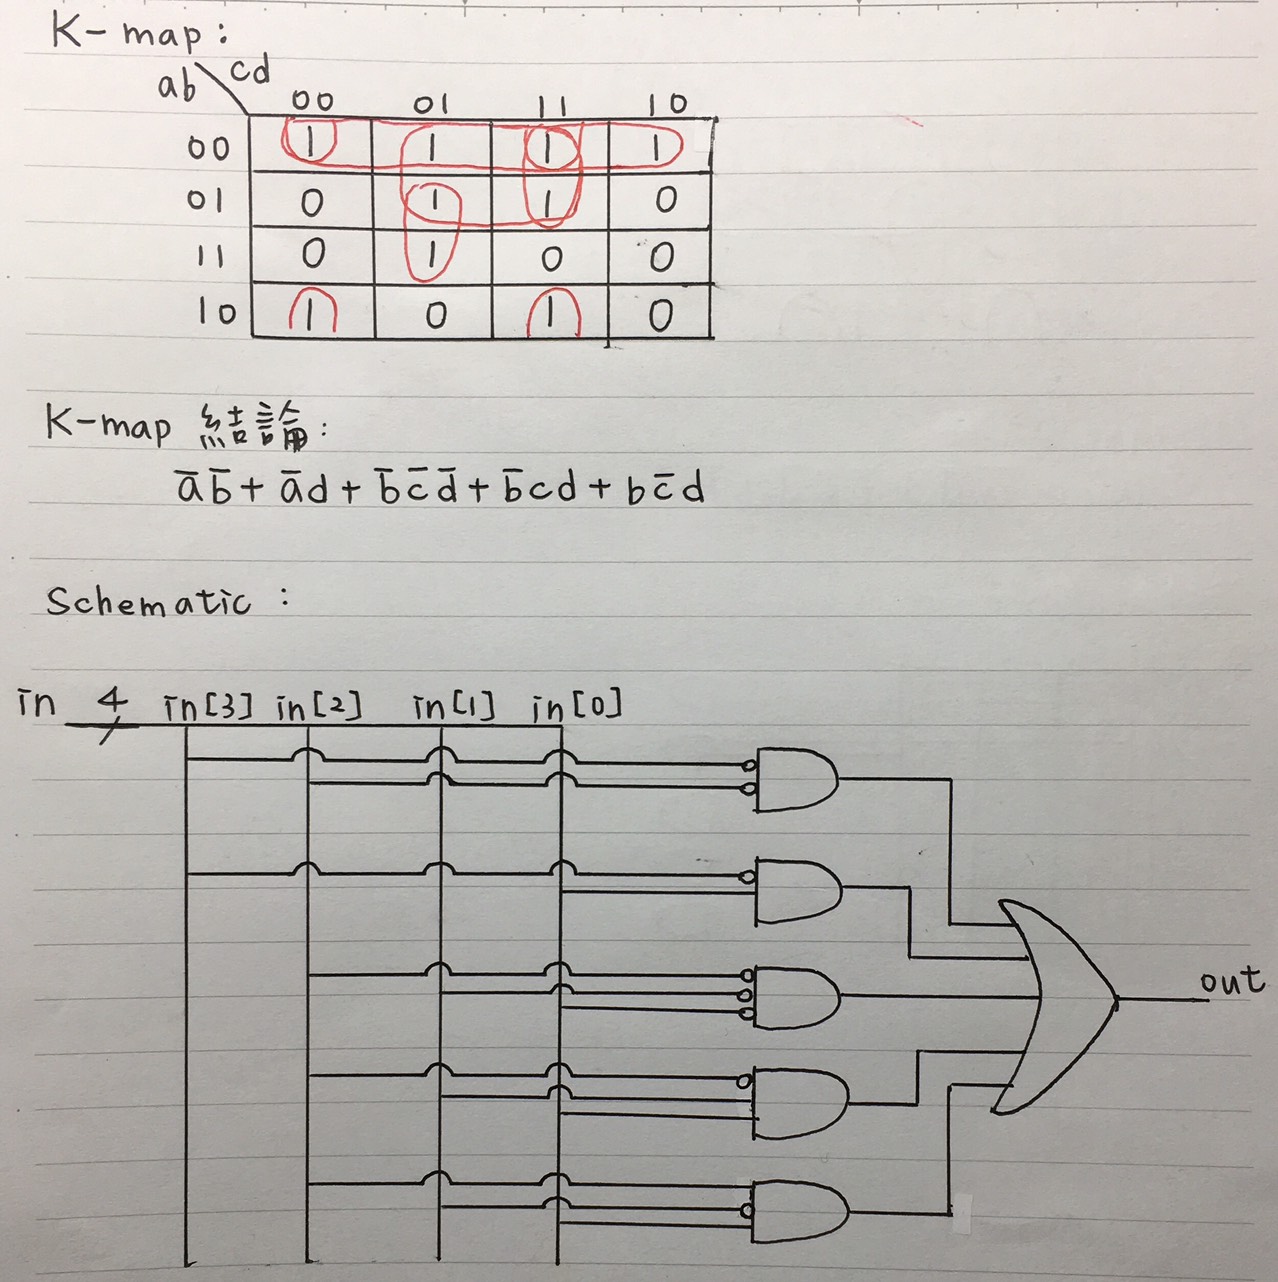 K-map:
ab cd
00 01 11 10
00 1 1 1 1
01 0 1 1 0
11 0 1 0 0
10 1 0 1 0
K-map 結論:
a̅b̅+a̅d+b̅c̅d̅+b̅cd+bc̅d
Schematic:
in 4 in[3] in[2] in[1] in[0]
out